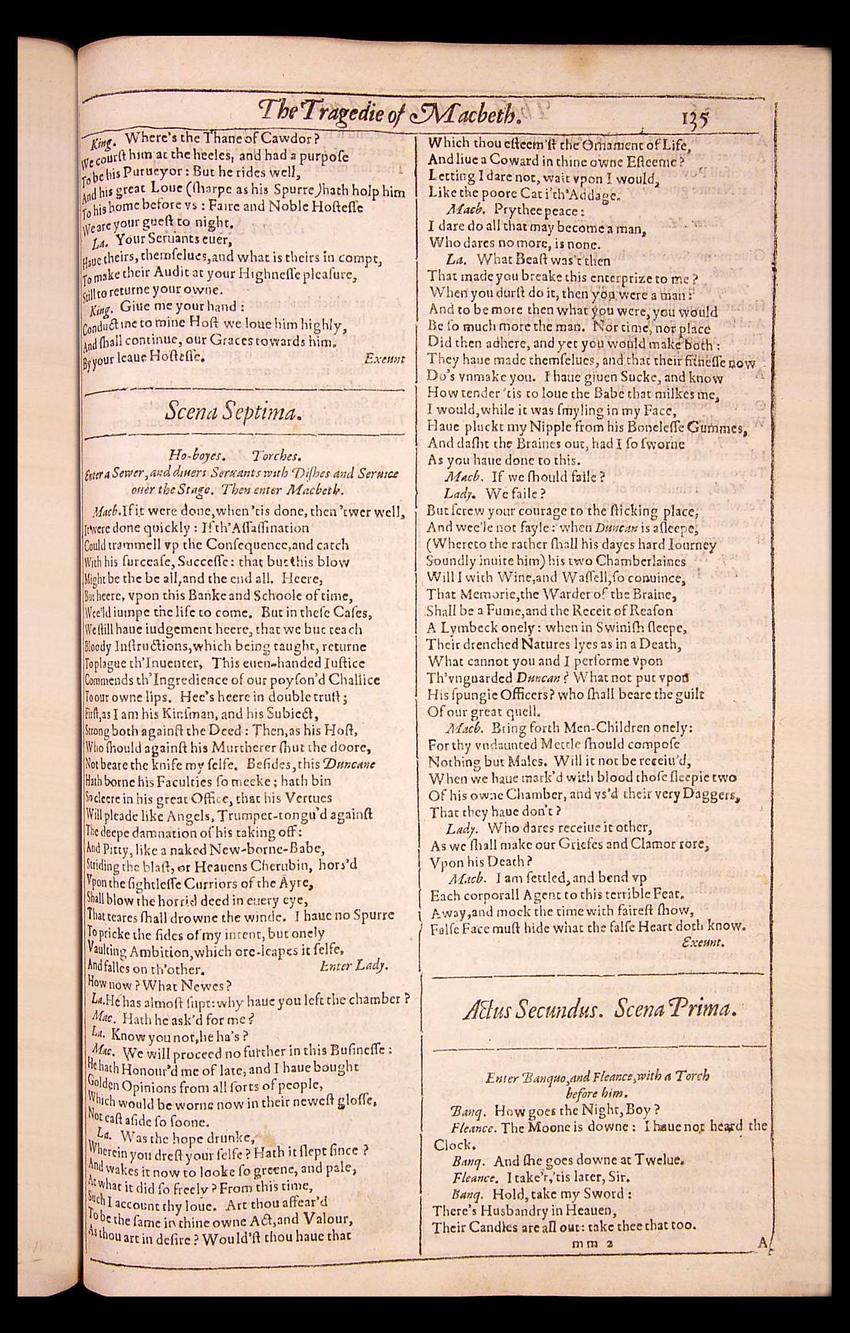 The Tragedie of Macbeth. 135
King. Where's the Thane of Cawdor?
We courſt him at the heeles, and had a purpoſe
To be his Purueyor: But he rides well,
And his great Loue (ſharpe as his Spurre)hath holp him
To his home before vs: Faire and Noble Hoſteſſe
We are your gueſt to night.
La. Your Seruants euer,
Haue theirs, themſelues, and what is theirs in compt,
To make their Audit at your Highneſſe pleaſure,
Still to returne your owne.
King. Giue me your hand:
Conduct me to mine Hoſt we loue him highly,
And ſhall continue, our Graces towards him.
By your leaue Hoſteſſe. Exeunt
Scena Septima.
Ho-boyes. Torches.
Enter a Sewer, and diuers Seruants with Diſhes and Seruice
ouer the Stage. Then enter Macbeth.
Macb. If it were done, when 'tis done, then 'twer well,
It were done quickly: If th'Aſſaſſination
Could trammell vp the Conſequence, and catch
With his ſurceaſe, Succeſſe: that but this blow
Might be the be all, and the end all. Heere,
But heere, vpon this Banke and Schoole of time,
Wee'ld iumpe the life to come. But in theſe Caſes,
We ſtill haue iudgement heere, that we but teach
Bloody Inſtructions, which being taught, returne
To plague th'Inuenter, This euen-handed Iuſtice
Commends th'Ingredience of our poyſon'd Challice
To our owne lips. Hee's heere in double truſt;
Firſt, as I am his Kinſman, and his Subiect,
Strong both againſt the Deed: Then, as his Hoſt,
Who ſhould againſt his Murtherer ſhut the doore,
Not beare the knife my ſelfe. Beſides, this Duncane
Hath borne his Faculties ſo meeke; hath bin
So cleere in his great Office, that his Vertues
Will pleade like Angels, Trumpet-tongu'd againſt
The deepe damnation of his taking off:
And Pitty, like a naked New-borne-Babe,
Striding the blaſt, or Heauens Cherubin, hors'd
Vpon the ſightleſſe Curriors of the Ayre,
Shall blow the horrid deed in euery eye,
That teares ſhall drowne the winde. I haue no Spurre
To pricke the ſides of my intent, but onely
Vaulting Ambition, which ore-leapes it ſelfe,
And falles on th'other. Enter Lady.
How now? What Newes?
La. He has almoſt ſupt: why haue you left the chamber?
Mac. Hath he ask'd for me?
La. Know you not, he ha's?
Mac. We will proceed no further in this Buſineſſe:
He hath Honour'd me of late, and I haue bought
Golden Opinions from all ſorts of people,
Which would be worne now in their neweſt gloſſe,
Not caſt aſide ſo ſoone.
La. Was the hope drunke,
Wherein you dreſt your ſelfe? Hath it ſlept ſince?
And wakes it now to looke ſo greene, and pale,
At what it did ſo freely? From this time,
Such I account thy loue. Art thou affear'd
To be the ſame in thine owne Act, and Valour,
As thou art in deſire? Would'ſt thou haue that
Which thou eſteem'ſt the Ornament of Life,
And liue a Coward in thine owne Eſteeme?
Letting I dare not, wait vpon I would,
Like the poore Cat i'th'Addage.
Macb. Prythee peace:
I dare do all that may become a man,
Who dares no more, is none.
La. What Beaſt was't then
That made you breake this enterprize to me?
When you durſt do it, then you were a man:
And to be more then what you were, you would
Be ſo much more the man. Nor time, nor place
Did then adhere, and yet you would make both:
They haue made themſelues, and that their fitneſſe now
Do's vnmake you. I haue giuen Sucke, and know
How tender 'tis to loue the Babe that milkes me,
I would, while it was ſmyling in my Face,
Haue pluckt my Nipple from his Boneleſſe Gummes,
And daſht the Braines out, had I ſo ſworne
As you haue done to this.
Macb. If we ſhould faile?
Lady. We faile?
But ſcrew your courage to the ſticking place,
And wee'le not fayle: when Duncan is aſleepe,
(Whereto the rather ſhall his dayes hard Iourney
Soundly inuite him) his two Chamberlaines
Will I with Wine, and Waſſell, ſo conuince,
That Memorie, the Warder of the Braine,
Shall be a Fume, and the Receit of Reaſon
A Lymbeck onely: when in Swiniſh ſleepe,
Their drenched Natures lyes as in a Death,
What cannot you and I performe vpon
Th'vnguarded Duncan? What not put vpon
His ſpungie Officers? who ſhall beare the guilt
Of our great quell.
Macb. Bring forth Men-Children onely:
For thy vndaunted Mettle ſhould compoſe
Nothing but Males. Will it not be receiu'd,
When we haue mark'd with blood thoſe ſleepie two
Of his owne Chamber, and vs'd their very Daggers,
That they haue don't?
Lady. Who dares receiue it other,
As we ſhall make our Griefes and Clamor rore,
Vpon his Death?
Macb. I am ſettled, and bend vp
Each corporall Agent to this terrible Feat.
Away, and mock the time with faireſt ſhow,
Falſe Face muſt hide what the falſe Heart doth know.
Exeunt.
Actus Secundus. Scena Prima.
Enter Banquo, and Fleance, with a Torch
before him.
Banq. How goes the Night, Boy?
Fleance. The Moone is downe: I haue not heard the
Clock.
Banq. And ſhe goes downe at Twelue.
Fleance. I take't, 'tis later, Sir.
Banq. Hold, take my Sword:
There's Husbandry in Heauen,
Their Candles are all out: take thee that too.
mm 2 A